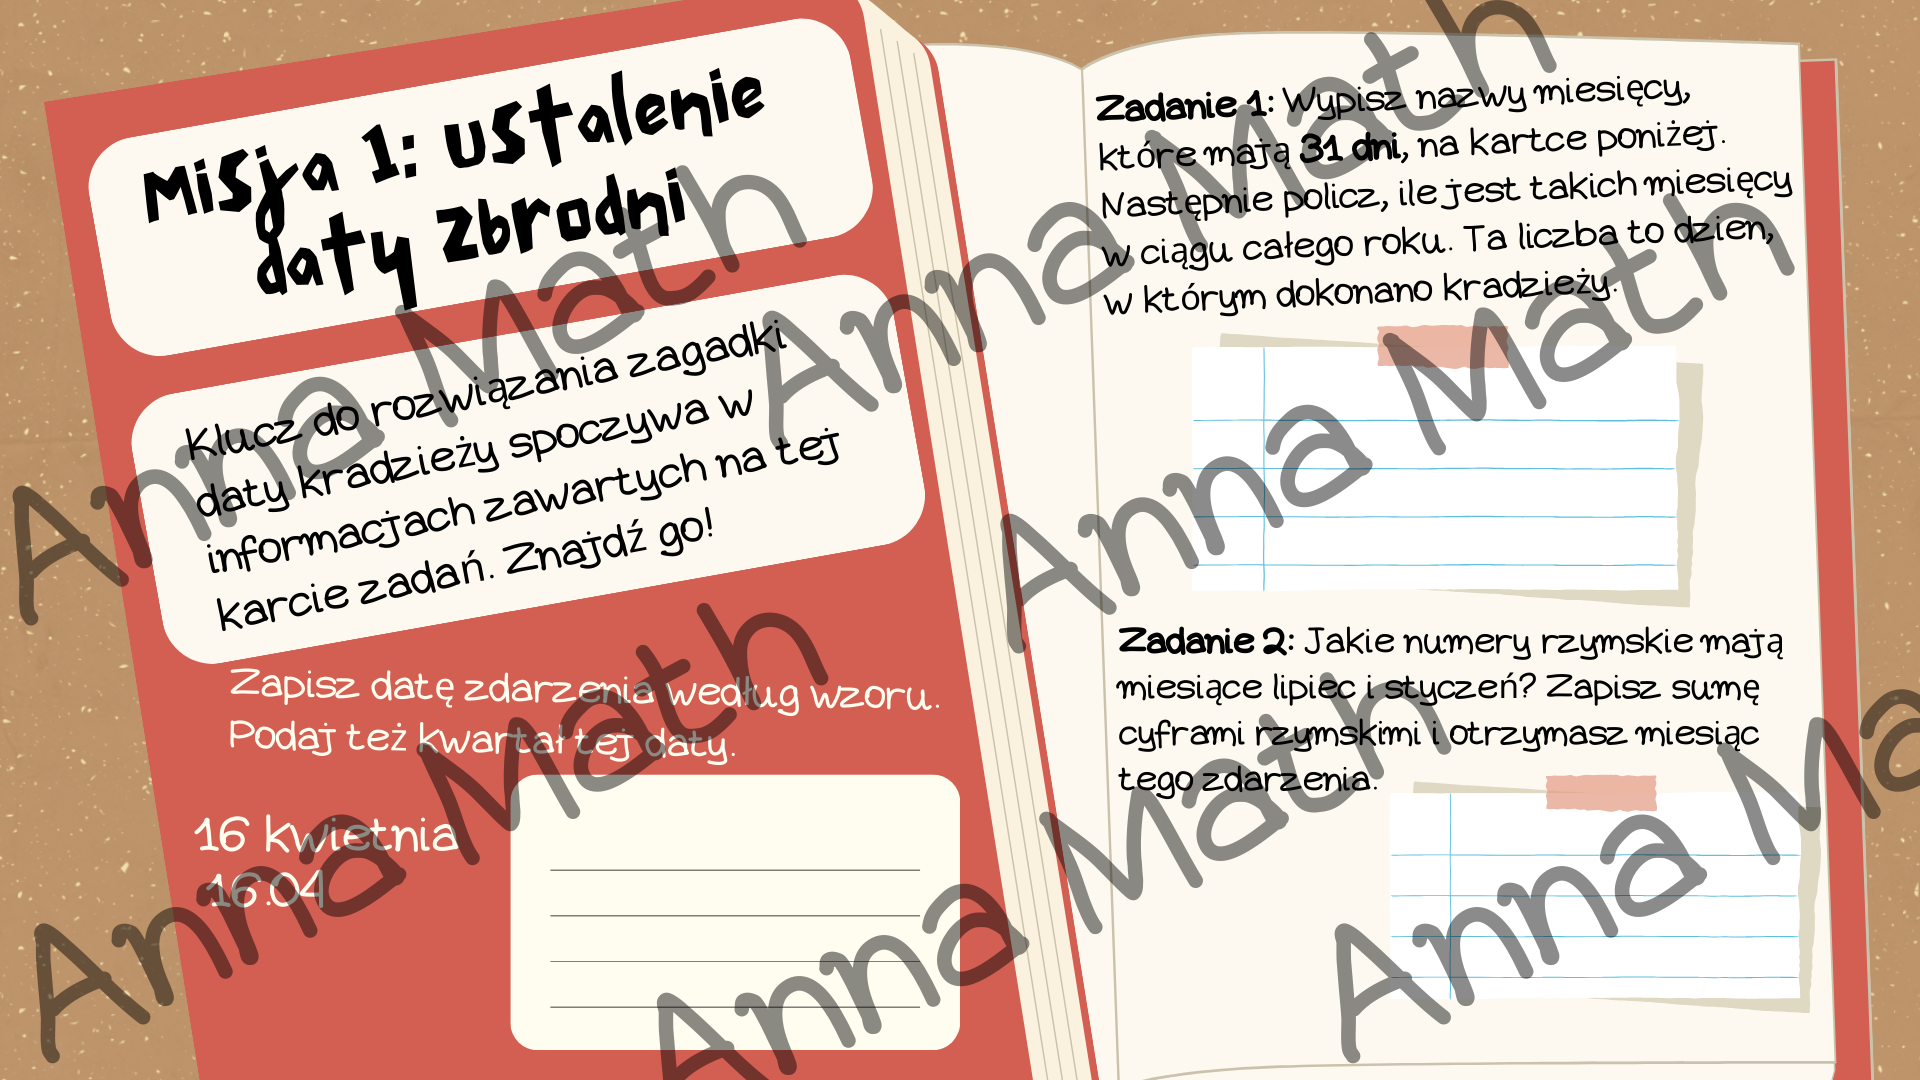 Misja 1: ustalenie
daty zbrodni
Klucz do rozwiązania zagadki
daty kradzieży spoczywa w
informacjach zawartych na tej
karcie zadań. Znajdź go!
Zapisz datę zdarzenia według wzoru.
Podaj też kwartał tej daty.
16 kwietnia
16.04
Zadanie 1: Wypisz nazwy miesięcy,
które mają 31 dni, na kartce poniżej.
Następnie policz, ile jest takich miesięcy
w ciągu całego roku. Ta liczba to dzien,
w którym dokonano kradzieży.
Zadanie 2: Jakie numery rzymskie mają
miesiące lipiec i styczeń? Zapisz sumę
cyframi rzymskimi i otrzymasz miesiąc
tego zdarzenia.
Anna Math
Anna Math
Anna Math
Anna Math
Anna Math
Anna Ma